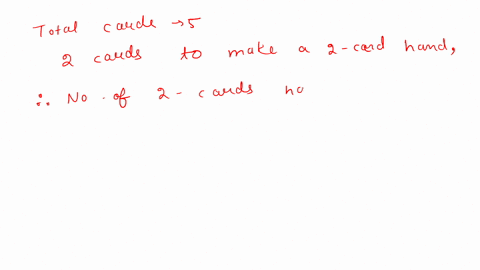 Total cards → 5
2 cards to make a 2-card hand,
∴ No. of 2-cards ha